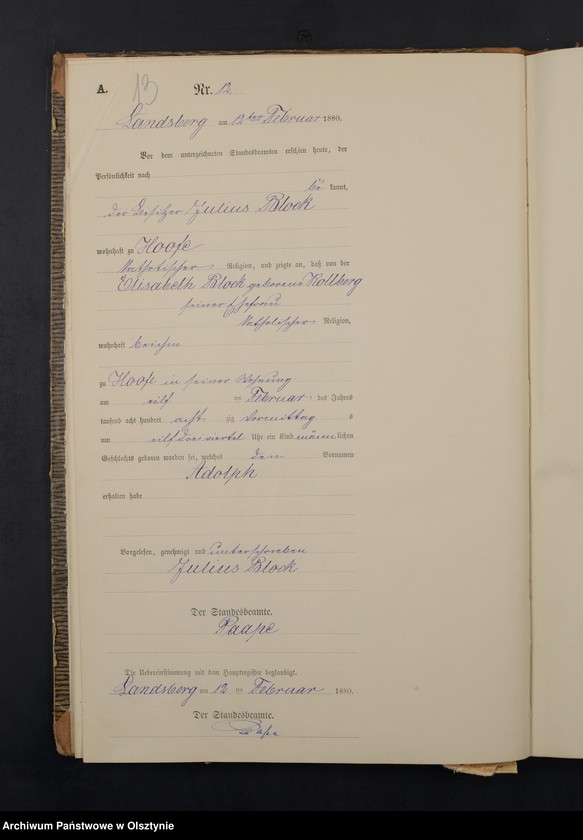 A.
13
Nr. 12.
Landsberg am 12ten Februar 1880.
Vor dem unterzeichneten Standesbeamten erschien heute, der
Persönlichkeit nach
be kannt,
der Besitzer Julius Block
wohnhaft zu Hoofe
katholischer Religion, und zeigte an, daß von der
Elisabeth Block geborene Kollberg
seiner Ehefrau
katholischer Religion,
wohnhaft bei ihm
zu Hoofe in seiner Wohnung
am eilf ten Februar des Jahres
tausend acht hundert acht zig Vormittag s
um eilf drei viertel Uhr ein Kind männlichen
Geschlechts geboren worden sei, welches den Vornamen
Adolph
erhalten habe
Vorgelesen, genehmigt und unterschrieben
Julius Block
Der Standesbeamte.
Paape
Die Uebereinstimmung mit dem Hauptregister beglaubigt.
Landsberg am 12 ten Februar 1880.
Der Standesbeamte.
Paape
Archiwum Państwowe w Olsztynie